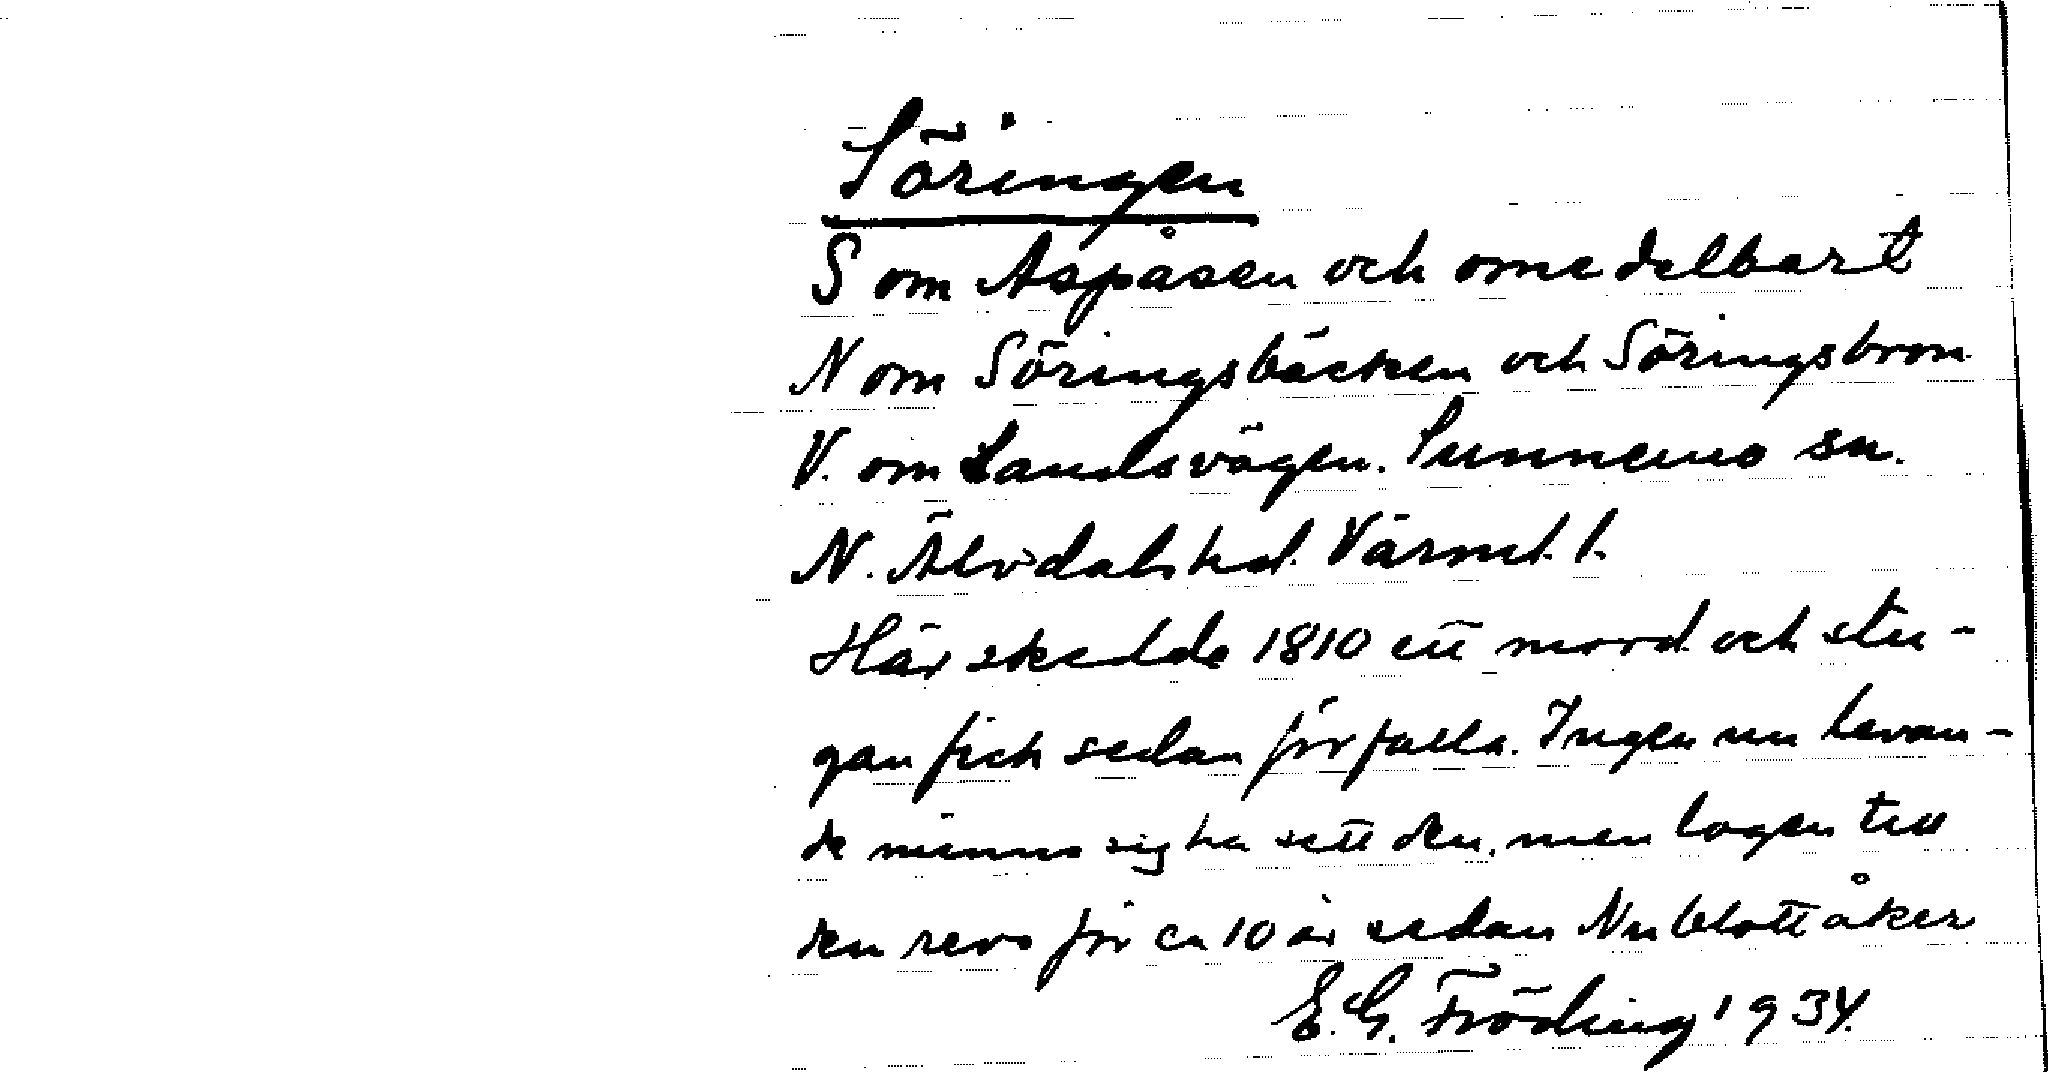 Söringen
S om Aspåsen och omedelbart
N om Söringsbäcken och Söringsbron
V. om Landsvägen. Sunnemo sn.
N. Älvdals hd. Värml. l.
Här skedde 1810 ett mord och stu-
gan fick sedan förfalla. Ingen nu levan-
de minns sig ha sett den, men logen till
den revs för ca 10 år sedan Nu blott åker
E. G. Fröding 1934.